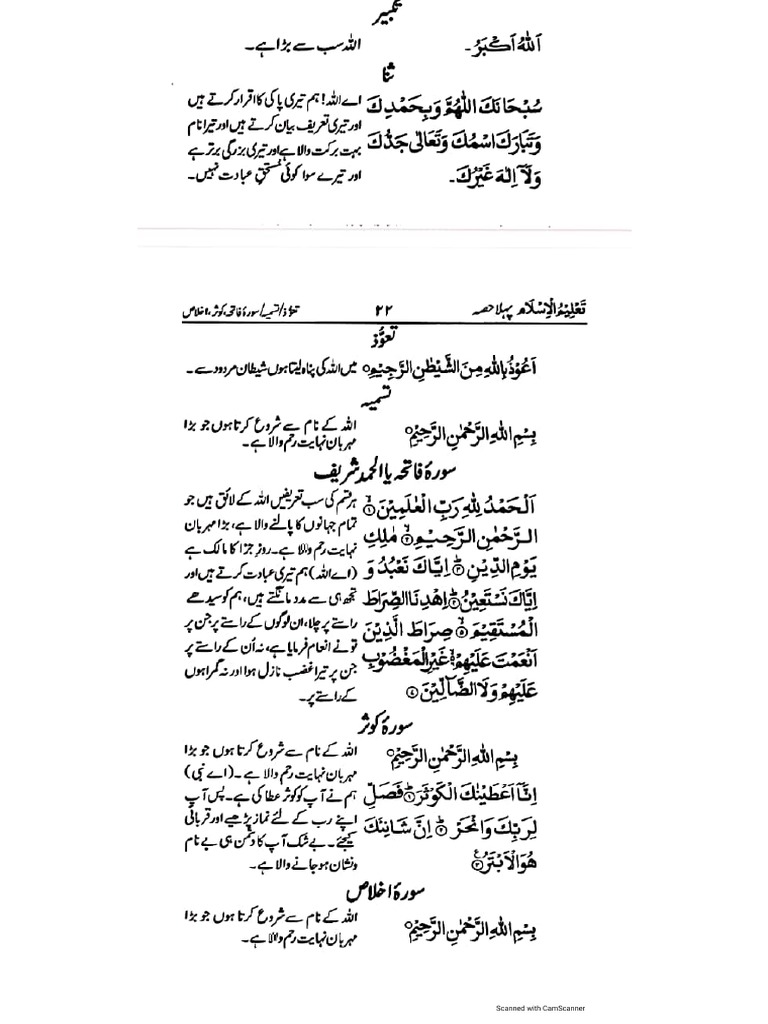 تکبیر
اَللّٰهُ اَكْبَرُ۔
اللہ سب سے بڑا ہے۔
ثنا
سُبْحَانَكَ اللّٰهُمَّ وَبِحَمْدِكَ
وَتَبَارَكَ اسْمُكَ وَتَعَالٰى جَدُّكَ
وَلَآ اِلٰهَ غَيْرُكَ۔
اے اللہ! ہم تیری پاکی کا اقرار کرتے ہیں
اور تیری تعریف بیان کرتے ہیں اور تیرا نام
بہت برکت والا ہے اور تیری بزرگی برتر ہے
اور تیرے سوا کوئی مُستحقِ عبادت نہیں۔
تَعْلِيْمُ الْاِسْلَام پہلا حصہ
۲۲
تعوّذ/تسمیہ/سورۂ فاتحہ، کوثر، اخلاص
تعوُّذ
اَعُوْذُ بِاللّٰهِ مِنَ الشَّيْطٰنِ الرَّجِيْمِ○
میں اللہ کی پناہ لیتا ہوں شیطان مردود سے۔
تسمیہ
بِسْمِ اللّٰهِ الرَّحْمٰنِ الرَّحِيْمِ○
اللہ کے نام سے شروع کرتا ہوں جو بڑا
مہربان نہایت رحم والا ہے۔
سورۂ فاتحہ یا الحمد شریف
اَلْحَمْدُ لِلّٰهِ رَبِّ الْعٰلَمِيْنَ ۙ﴿۱﴾
الرَّحْمٰنِ الرَّحِيْمِ ۙ﴿۲﴾ مٰلِكِ
يَوْمِ الدِّيْنِ ؕ﴿۳﴾ اِيَّاكَ نَعْبُدُ وَ
اِيَّاكَ نَسْتَعِيْنُ ؕ﴿۴﴾ اِهْدِنَا الصِّرَاطَ
الْمُسْتَقِيْمَ ۙ﴿۵﴾ صِرَاطَ الَّذِيْنَ
اَنْعَمْتَ عَلَيْهِمْ ۙ﴿۶﴾ غَيْرِ الْمَغْضُوْبِ
عَلَيْهِمْ وَلَا الضَّآلِّيْنَ
ہر قسم کی سب تعریفیں اللہ کے لائق ہیں جو
تمام جہانوں کا پالنے والا ہے، بڑا مہربان
نہایت رحم والا ہے۔ روزِ جزا کا مالک ہے
(اے اللہ) ہم تیری عبادت کرتے ہیں اور
تجھ ہی سے مدد مانگتے ہیں، ہم کو سیدھے
راستے پر چلا، ان لوگوں کے راستے پر جن پر
تو نے انعام فرمایا ہے، نہ اُن کے راستے پر
جن پر تیرا غضب نازل ہوا اور نہ گمراہوں
کے راستے پر۔
سورۂ کوثر
بِسْمِ اللّٰهِ الرَّحْمٰنِ الرَّحِيْمِ○
اِنَّآ اَعْطَيْنٰكَ الْكَوْثَرَ ؕ﴿۱﴾ فَصَلِّ
لِرَبِّكَ وَانْحَرْ ؕ﴿۲﴾ اِنَّ شَانِئَكَ
هُوَ الْاَبْتَرُ ﴿۳﴾
اللہ کے نام سے شروع کرتا ہوں جو بڑا
مہربان نہایت رحم والا ہے۔ (اے نبی)
ہم نے آپ کو کوثر عطا کی ہے۔ پس آپ
اپنے رب کے لئے نماز پڑھیے اور قربانی
کیجئے۔ بے شک آپ کا دشمن ہی بے نام
و نشان ہو جانے والا ہے۔
سورۂ اخلاص
بِسْمِ اللّٰهِ الرَّحْمٰنِ الرَّحِيْمِ○
اللہ کے نام سے شروع کرتا ہوں جو بڑا
مہربان نہایت رحم والا ہے۔
Scanned with CamScanner